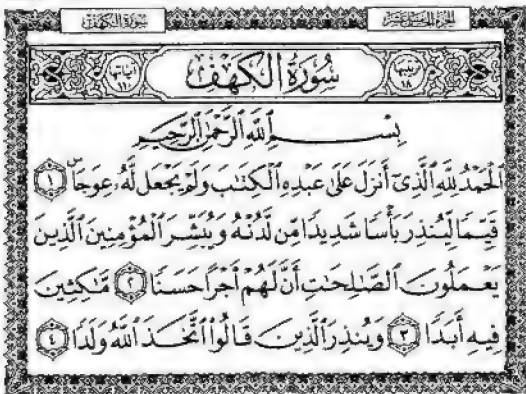 سورة الكهف الجزء الخامس عشر
ترتيبها ١٨ سُورَةُ الْكَهْفِ آياتها ١١٠
بِسْمِ ٱللَّهِ ٱلرَّحْمَٰنِ ٱلرَّحِيمِ
ٱلْحَمْدُ لِلَّهِ ٱلَّذِىٓ أَنزَلَ عَلَىٰ عَبْدِهِ ٱلْكِتَٰبَ وَلَمْ يَجْعَل لَّهُۥ عِوَجَاۜ ١
قَيِّمًا لِّيُنذِرَ بَأْسًا شَدِيدًا مِّن لَّدُنْهُ وَيُبَشِّرَ ٱلْمُؤْمِنِينَ ٱلَّذِينَ
يَعْمَلُونَ ٱلصَّٰلِحَٰتِ أَنَّ لَهُمْ أَجْرًا حَسَنًا ٢ مَّٰكِثِينَ
فِيهِ أَبَدًا ٣ وَيُنذِرَ ٱلَّذِينَ قَالُوا۟ ٱتَّخَذَ ٱللَّهُ وَلَدًا ٤